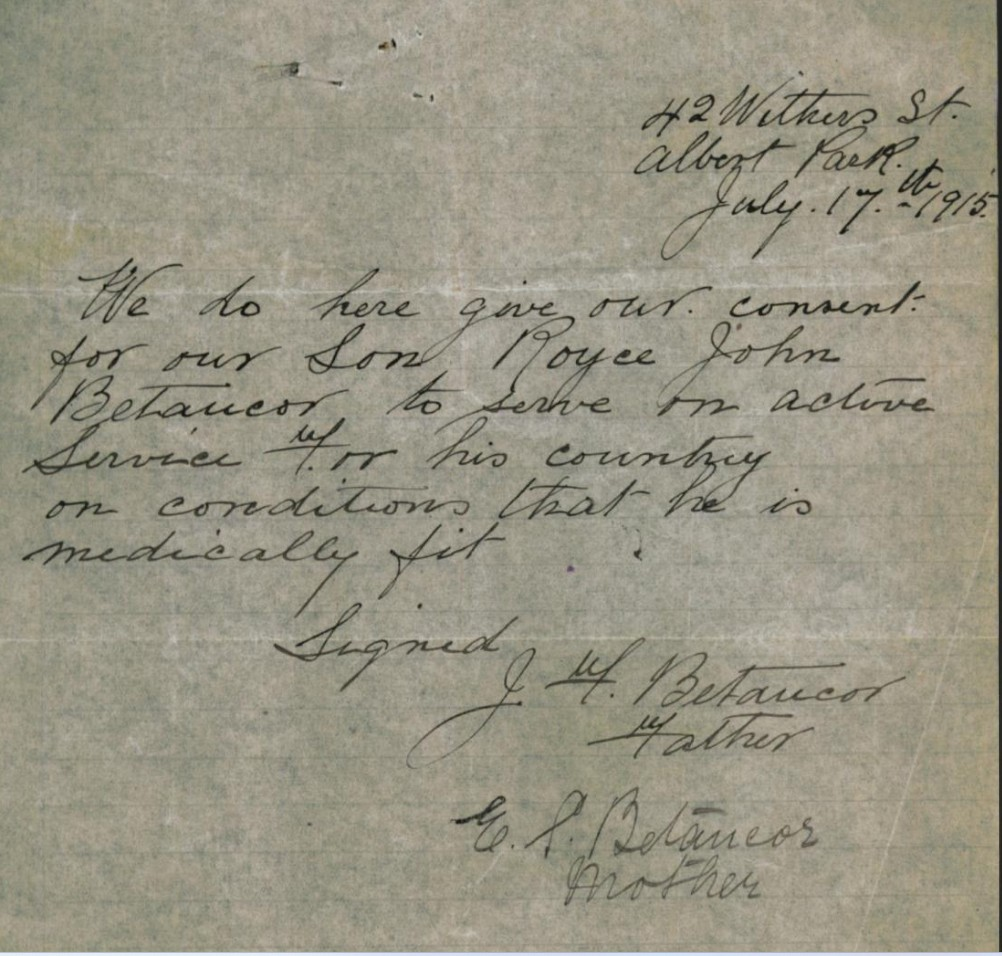 42 Withers St.
Albert Park.
July. 17.th 1915.
We do here give our. consent.
for our Son Royce John
Betancor to serve on active
Service For his country
on conditions that he is
medically fit
Signed
J F. Betancor
Father
E. S. Betancor
Mother